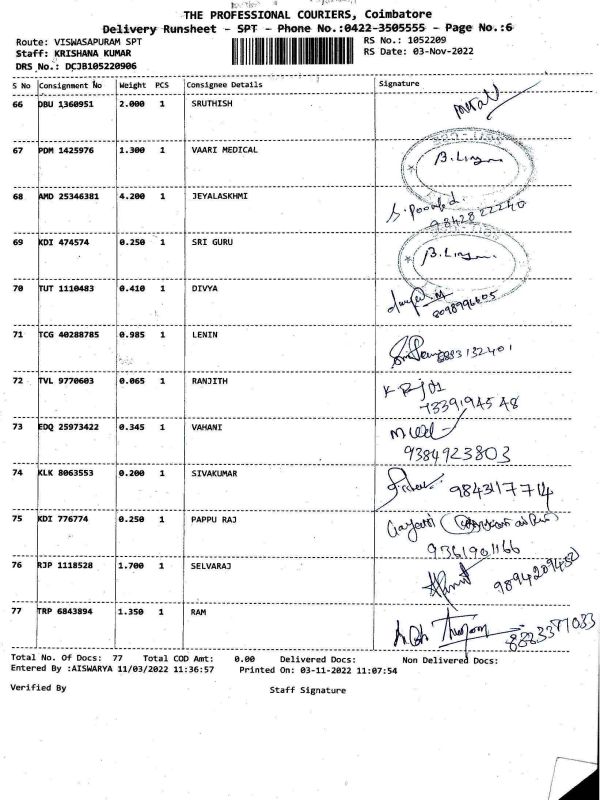 THE PROFESSIONAL COURIERS, Coimbatore
Delivery Runsheet - SPT - Phone No.:0422-3505555 - Page No.:6
Route: VISWASAPURAM SPT
RS No.: 1052209
Staff: KRISHANA KUMAR
RS Date: 03-Nov-2022
DRS No.: DCJB105220906
S No Consignment No Weight PCS Consignee Details Signature
66 DBU 1360951 2.000 1 SRUTHISH
67 PDM 1425976 1.300 1 VAARI MEDICAL
68 AMD 25346381 4.200 1 JEYALASKHMI
9842822240
69 KDI 474574 0.250 1 SRI GURU
70 TUT 1110483 0.410 1 DIVYA
8098996605
71 TCG 40288785 0.985 1 LENIN
8883132401
72 TVL 9770603 0.065 1 RANJITH
7339194548
73 EDQ 25973422 0.345 1 VAHANI
9384923803
74 KLK 8063553 0.200 1 SIVAKUMAR
9843117714
75 KDI 776774 0.250 1 PAPPU RAJ Gayatri
9361901166
76 RJP 1118528 1.700 1 SELVARAJ
77 TRP 6843894 1.350 1 RAM
Total No. Of Docs: 77 Total COD Amt: 0.00 Delivered Docs: Non Delivered Docs:
Entered By :AISWARYA 11/03/2022 11:36:57 Printed On: 03-11-2022 11:07:54
Verified By Staff Signature